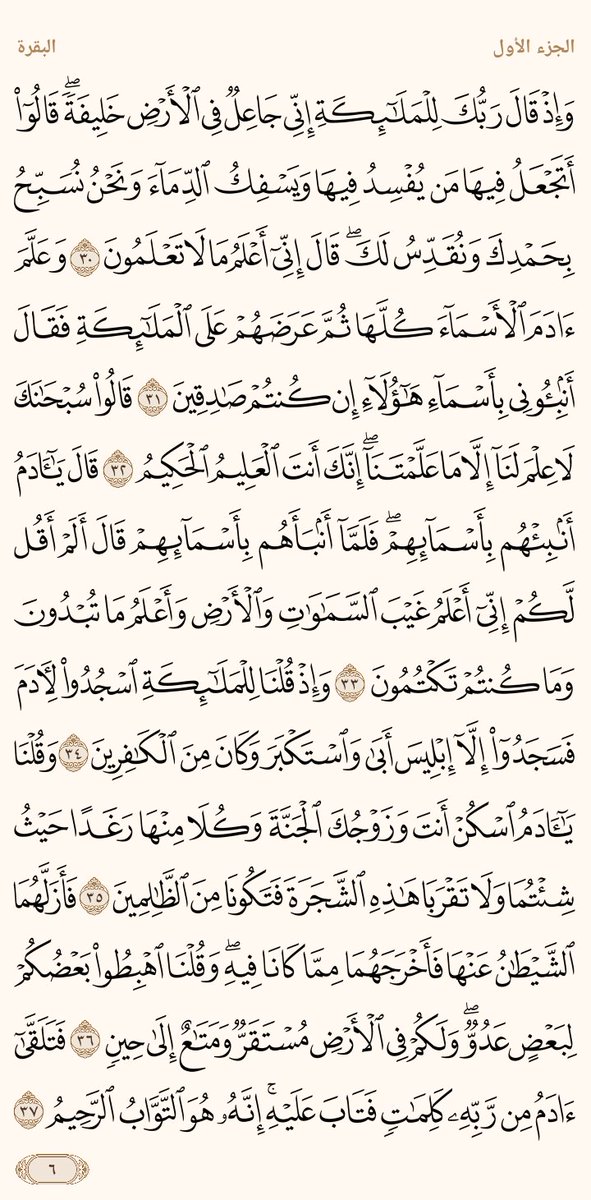 الجزء الأول
البقرة
وَإِذۡ قَالَ رَبُّكَ لِلۡمَلَـٰٓئِكَةِ إِنِّي جَاعِلٞ فِي ٱلۡأَرۡضِ خَلِيفَةٗۖ قَالُوٓاْ
أَتَجۡعَلُ فِيهَا مَن يُفۡسِدُ فِيهَا وَيَسۡفِكُ ٱلدِّمَآءَ وَنَحۡنُ نُسَبِّحُ
بِحَمۡدِكَ وَنُقَدِّسُ لَكَۖ قَالَ إِنِّيٓ أَعۡلَمُ مَا لَا تَعۡلَمُونَ ٣٠ وَعَلَّمَ
ءَادَمَ ٱلۡأَسۡمَآءَ كُلَّهَا ثُمَّ عَرَضَهُمۡ عَلَى ٱلۡمَلَـٰٓئِكَةِ فَقَالَ
أَنۢبِـُٔونِي بِأَسۡمَآءِ هَـٰٓؤُلَآءِ إِن كُنتُمۡ صَـٰدِقِينَ ٣١ قَالُواْ سُبۡحَـٰنَكَ
لَا عِلۡمَ لَنَآ إِلَّا مَا عَلَّمۡتَنَآۖ إِنَّكَ أَنتَ ٱلۡعَلِيمُ ٱلۡحَكِيمُ ٣٢ قَالَ يَـٰٓـَٔادَمُ
أَنۢبِئۡهُم بِأَسۡمَآئِهِمۡۖ فَلَمَّآ أَنۢبَأَهُم بِأَسۡمَآئِهِمۡ قَالَ أَلَمۡ أَقُل
لَّكُمۡ إِنِّيٓ أَعۡلَمُ غَيۡبَ ٱلسَّمَـٰوَٰتِ وَٱلۡأَرۡضِ وَأَعۡلَمُ مَا تُبۡدُونَ
وَمَا كُنتُمۡ تَكۡتُمُونَ ٣٣ وَإِذۡ قُلۡنَا لِلۡمَلَـٰٓئِكَةِ ٱسۡجُدُواْ لِأٓدَمَ
فَسَجَدُوٓاْ إِلَّآ إِبۡلِيسَ أَبَىٰ وَٱسۡتَكۡبَرَ وَكَانَ مِنَ ٱلۡكَـٰفِرِينَ ٣٤ وَقُلۡنَا
يَـٰٓـَٔادَمُ ٱسۡكُنۡ أَنتَ وَزَوۡجُكَ ٱلۡجَنَّةَ وَكُلَا مِنۡهَا رَغَدًا حَيۡثُ
شِئۡتُمَا وَلَا تَقۡرَبَا هَـٰذِهِ ٱلشَّجَرَةَ فَتَكُونَا مِنَ ٱلظَّـٰلِمِينَ ٣٥ فَأَزَلَّهُمَا
ٱلشَّيۡطَـٰنُ عَنۡهَا فَأَخۡرَجَهُمَا مِمَّا كَانَا فِيهِۖ وَقُلۡنَا ٱهۡبِطُواْ بَعۡضُكُمۡ
لِبَعۡضٍ عَدُوّٞۖ وَلَكُمۡ فِي ٱلۡأَرۡضِ مُسۡتَقَرّٞ وَمَتَـٰعٌ إِلَىٰ حِينٖ ٣٦ فَتَلَقَّىٰٓ
ءَادَمُ مِن رَّبِّهِۦ كَلِمَـٰتٖ فَتَابَ عَلَيۡهِۚ إِنَّهُۥ هُوَ ٱلتَّوَّابُ ٱلرَّحِيمُ ٣٧
٦